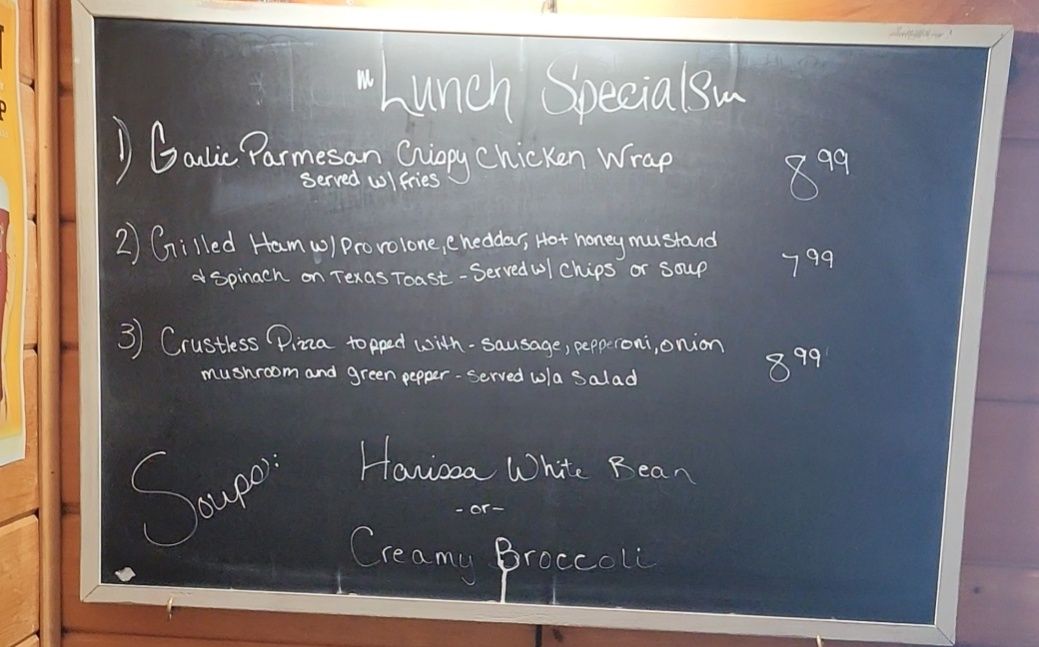 Lunch Specials
1) Garlic Parmesan Crispy Chicken Wrap 8 99
Served w/ fries
2) Grilled Ham w/ Provolone, Cheddar, Hot honey mustard
& Spinach on Texas Toast - Served w/ Chips or Soup 7 99
3) Crustless Pizza topped with - sausage, pepperoni, onion
mushroom and green pepper - Served w/a Salad 8 99
Soups: Harissa White Bean
- or -
Creamy Broccoli